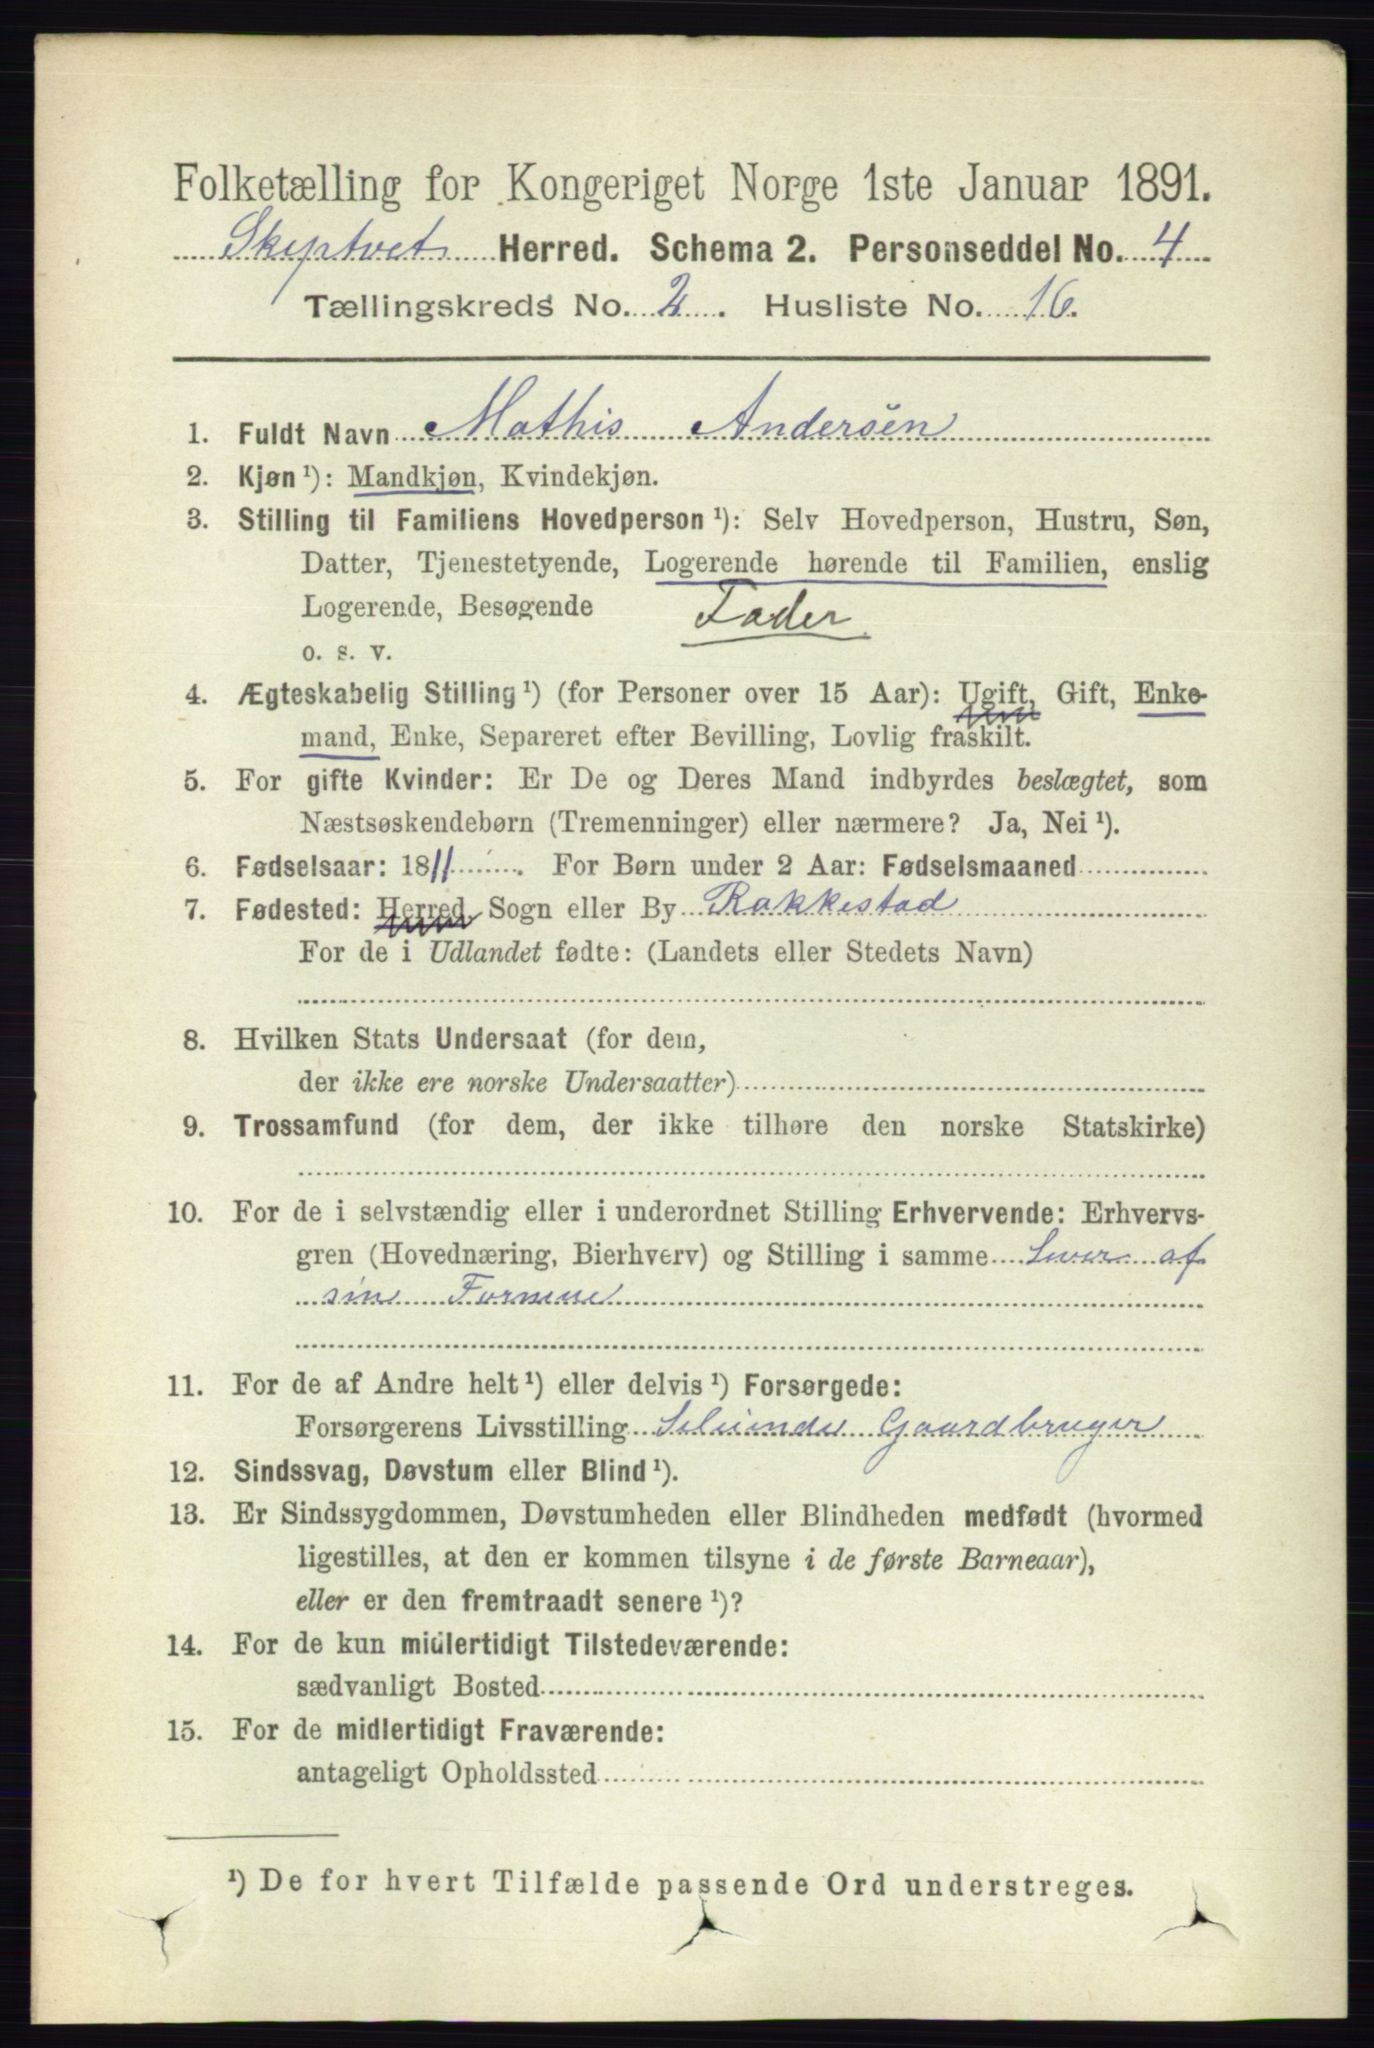 Folketælling for Kongeriget Norge 1ste Januar 1891.
Skiptvet Herred. Schema 2. Personseddel No. 4
Tællingskreds No. 2. Husliste No. 16.
1. Fuldt Navn Mathis Andersen
2. Kjøn ¹): Mandkjøn, Kvindekjøn.
3. Stilling til Familiens Hovedperson ¹): Selv Hovedperson, Hustru, Søn,
Datter, Tjenestetyende, Logerende hørende til Familien, enslig
Logerende, Besøgende Fader
o. s. v.
4. Ægteskabelig Stilling ¹) (for Personer over 15 Aar): Ugift, Gift, Enke-
mand, Enke, Separeret efter Bevilling, Lovlig fraskilt.
5. For gifte Kvinder: Er De og Deres Mand indbyrdes beslægtet, som
Næstsøskendebørn (Tremenninger) eller nærmere? Ja, Nei ¹).
6. Fødselsaar: 1811. For Børn under 2 Aar: Fødselsmaaned
7. Fødested: Herred, Sogn eller By Rakkestad
For de i Udlandet fødte: (Landets eller Stedets Navn)
8. Hvilken Stats Undersaat (for dem,
der ikke ere norske Undersaatter)
9. Trossamfund (for dem, der ikke tilhøre den norske Statskirke)
10. For de i selvstændig eller i underordnet Stilling Erhvervende: Erhvervs-
gren (Hovednæring, Bierhverv) og Stilling i samme Lever af
sin Formue
11. For de af Andre helt ¹) eller delvis ¹) Forsørgede:
Forsørgerens Livsstilling Seleiende Gaardbruger
12. Sindssvag, Døvstum eller Blind ¹).
13. Er Sindssygdommen, Døvstumheden eller Blindheden medfødt (hvormed
ligestilles, at den er kommen tilsyne i de første Barneaar),
eller er den fremtraadt senere ¹)?
14. For de kun midlertidigt Tilstedeværende:
sædvanligt Bosted
15. For de midlertidigt Fraværende:
antageligt Opholdssted
¹) De for hvert Tilfælde passende Ord understreges.